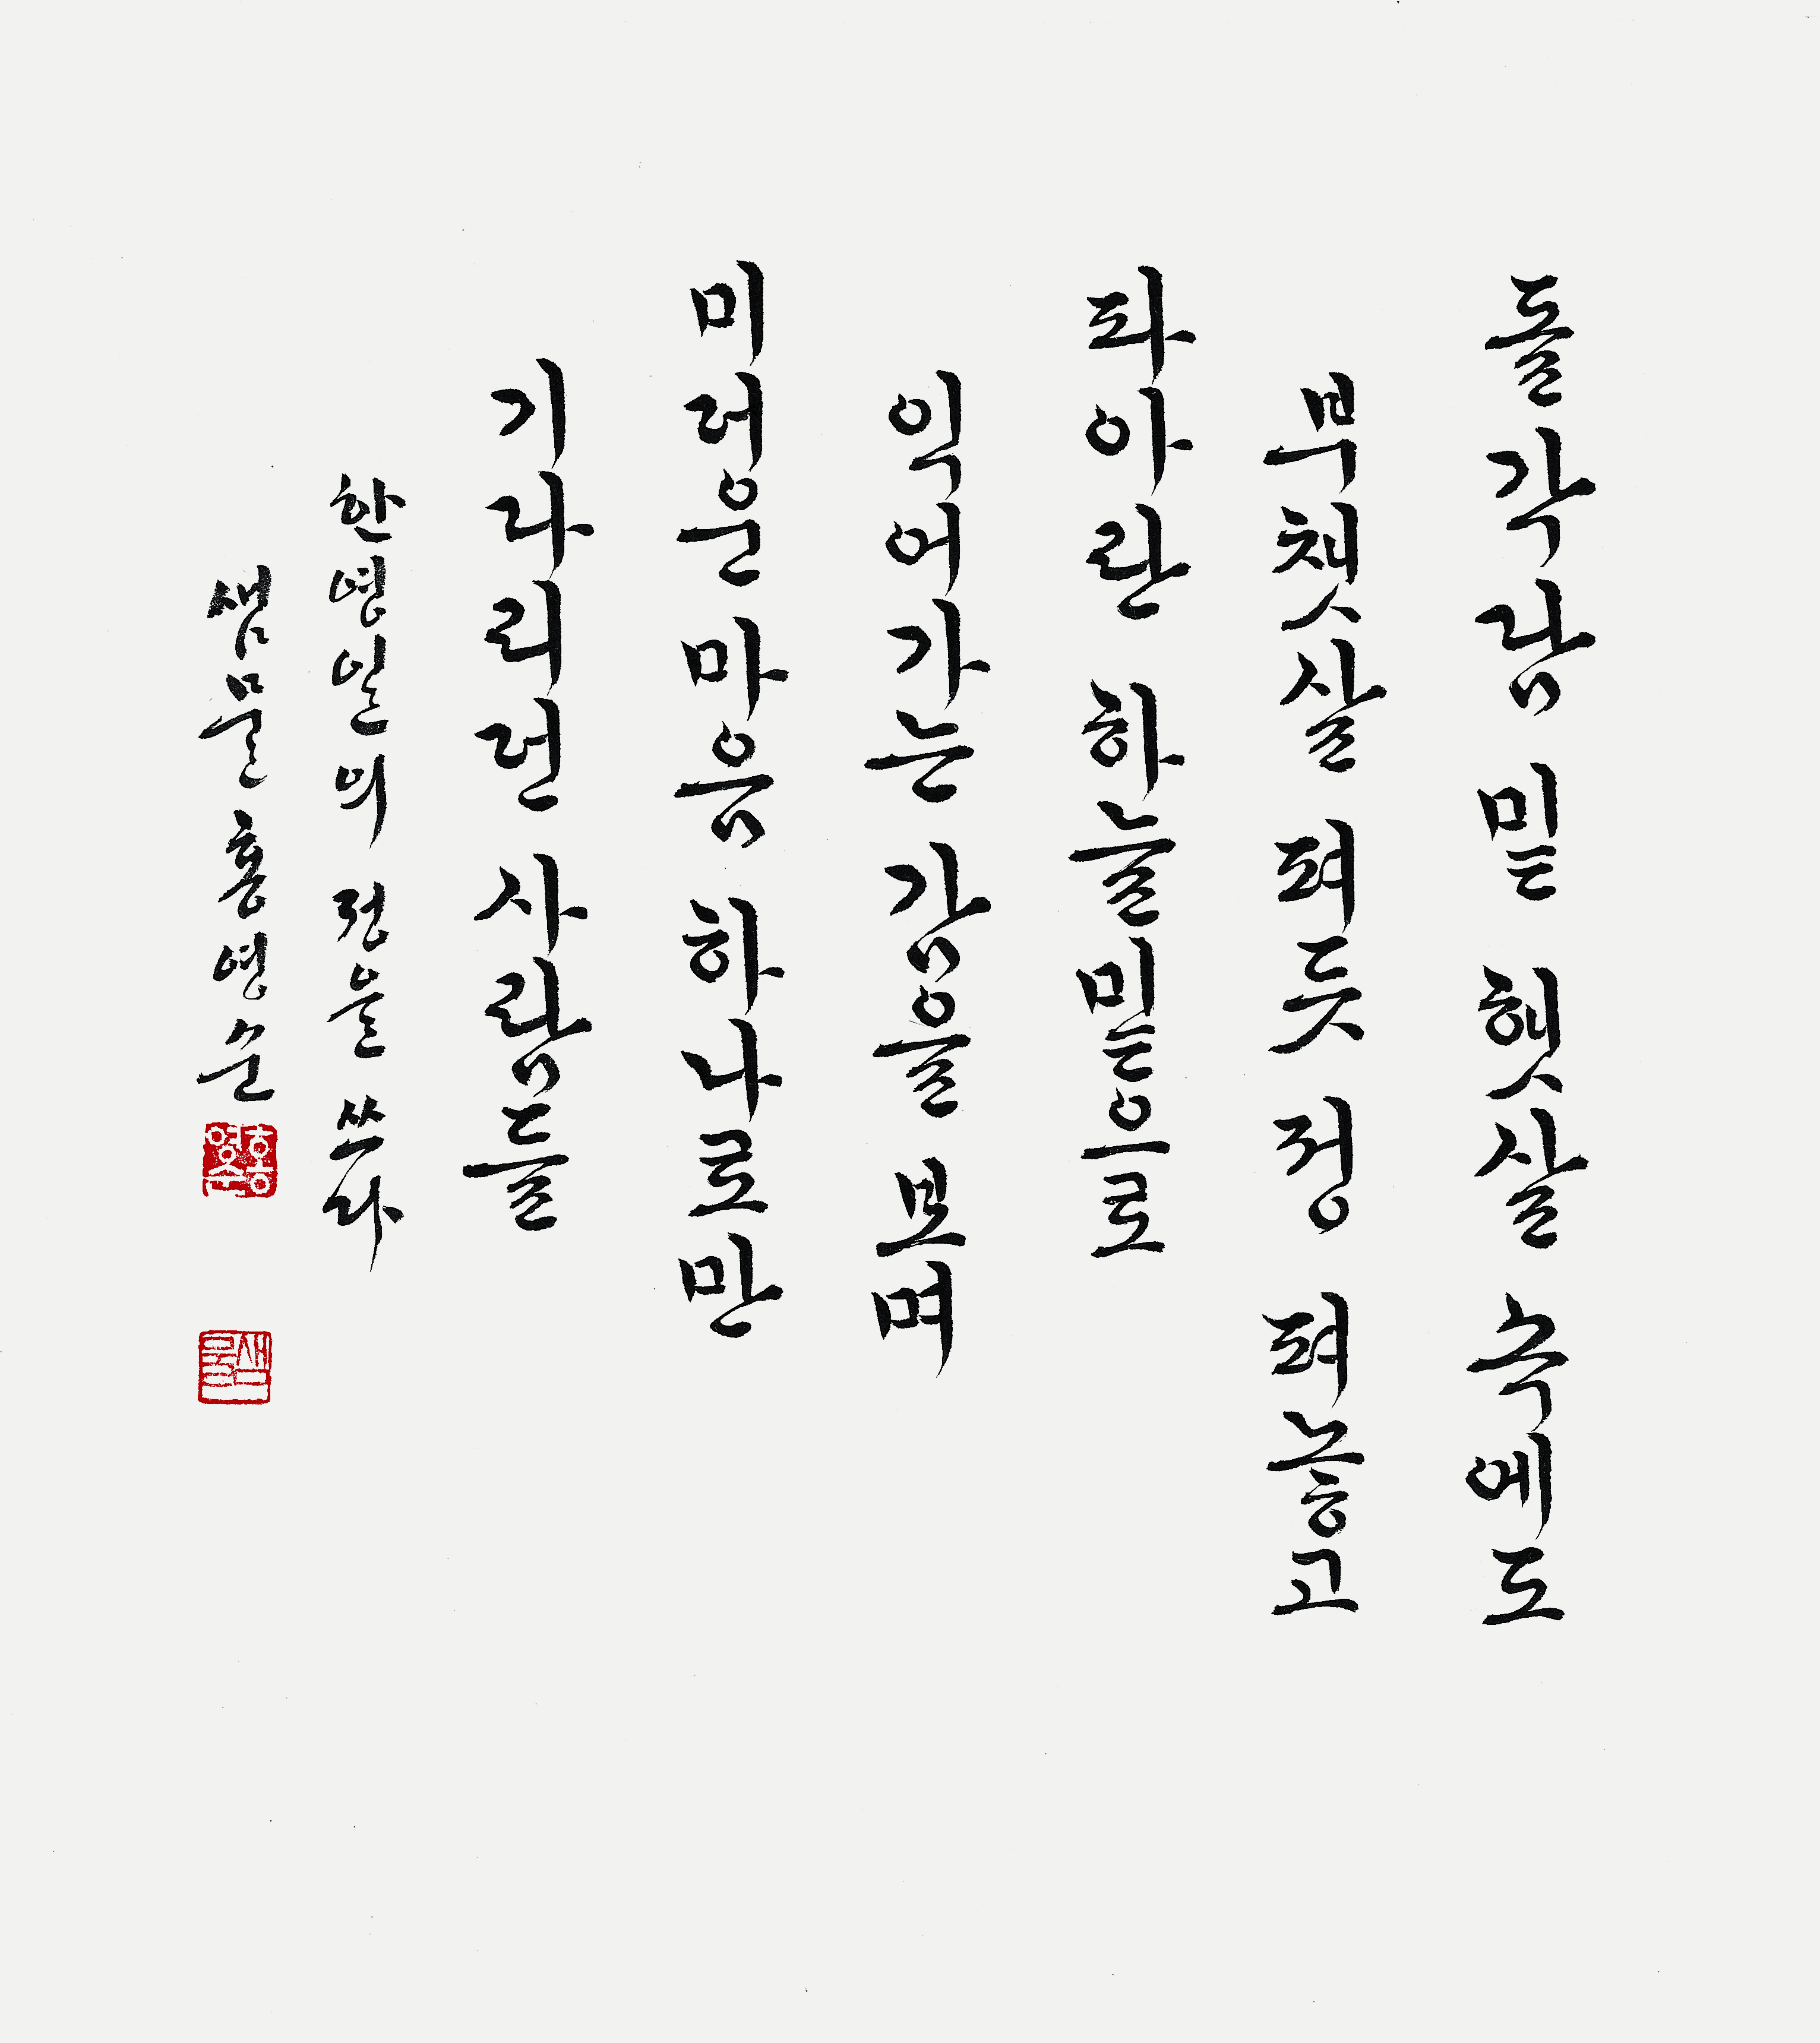 돌각담 밑 햇살 속에도
부챗살 펴듯 정 펴놓고
파아란 하늘 밑으로
익어가는 감을 보며
미더운 마음 하나로만
기다리던 사람들
한영일의 정을 쓰다
샘물 홍영순
홍영순
샘물